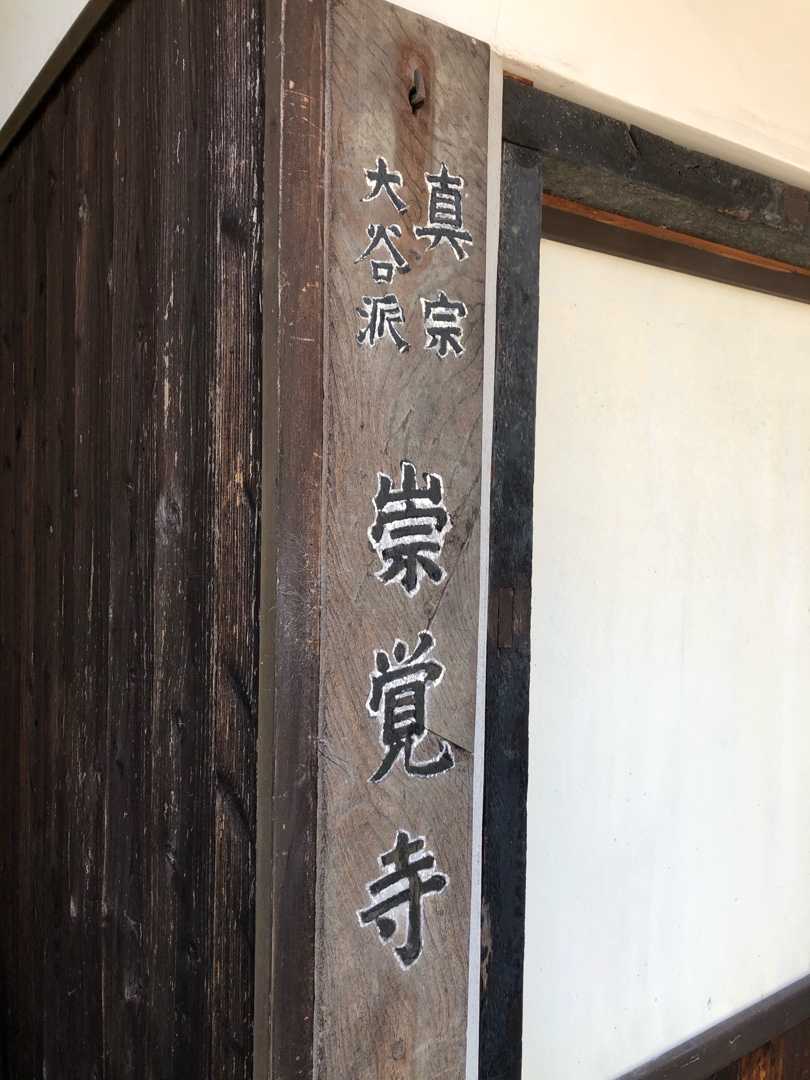 真宗
大谷派
崇覚寺